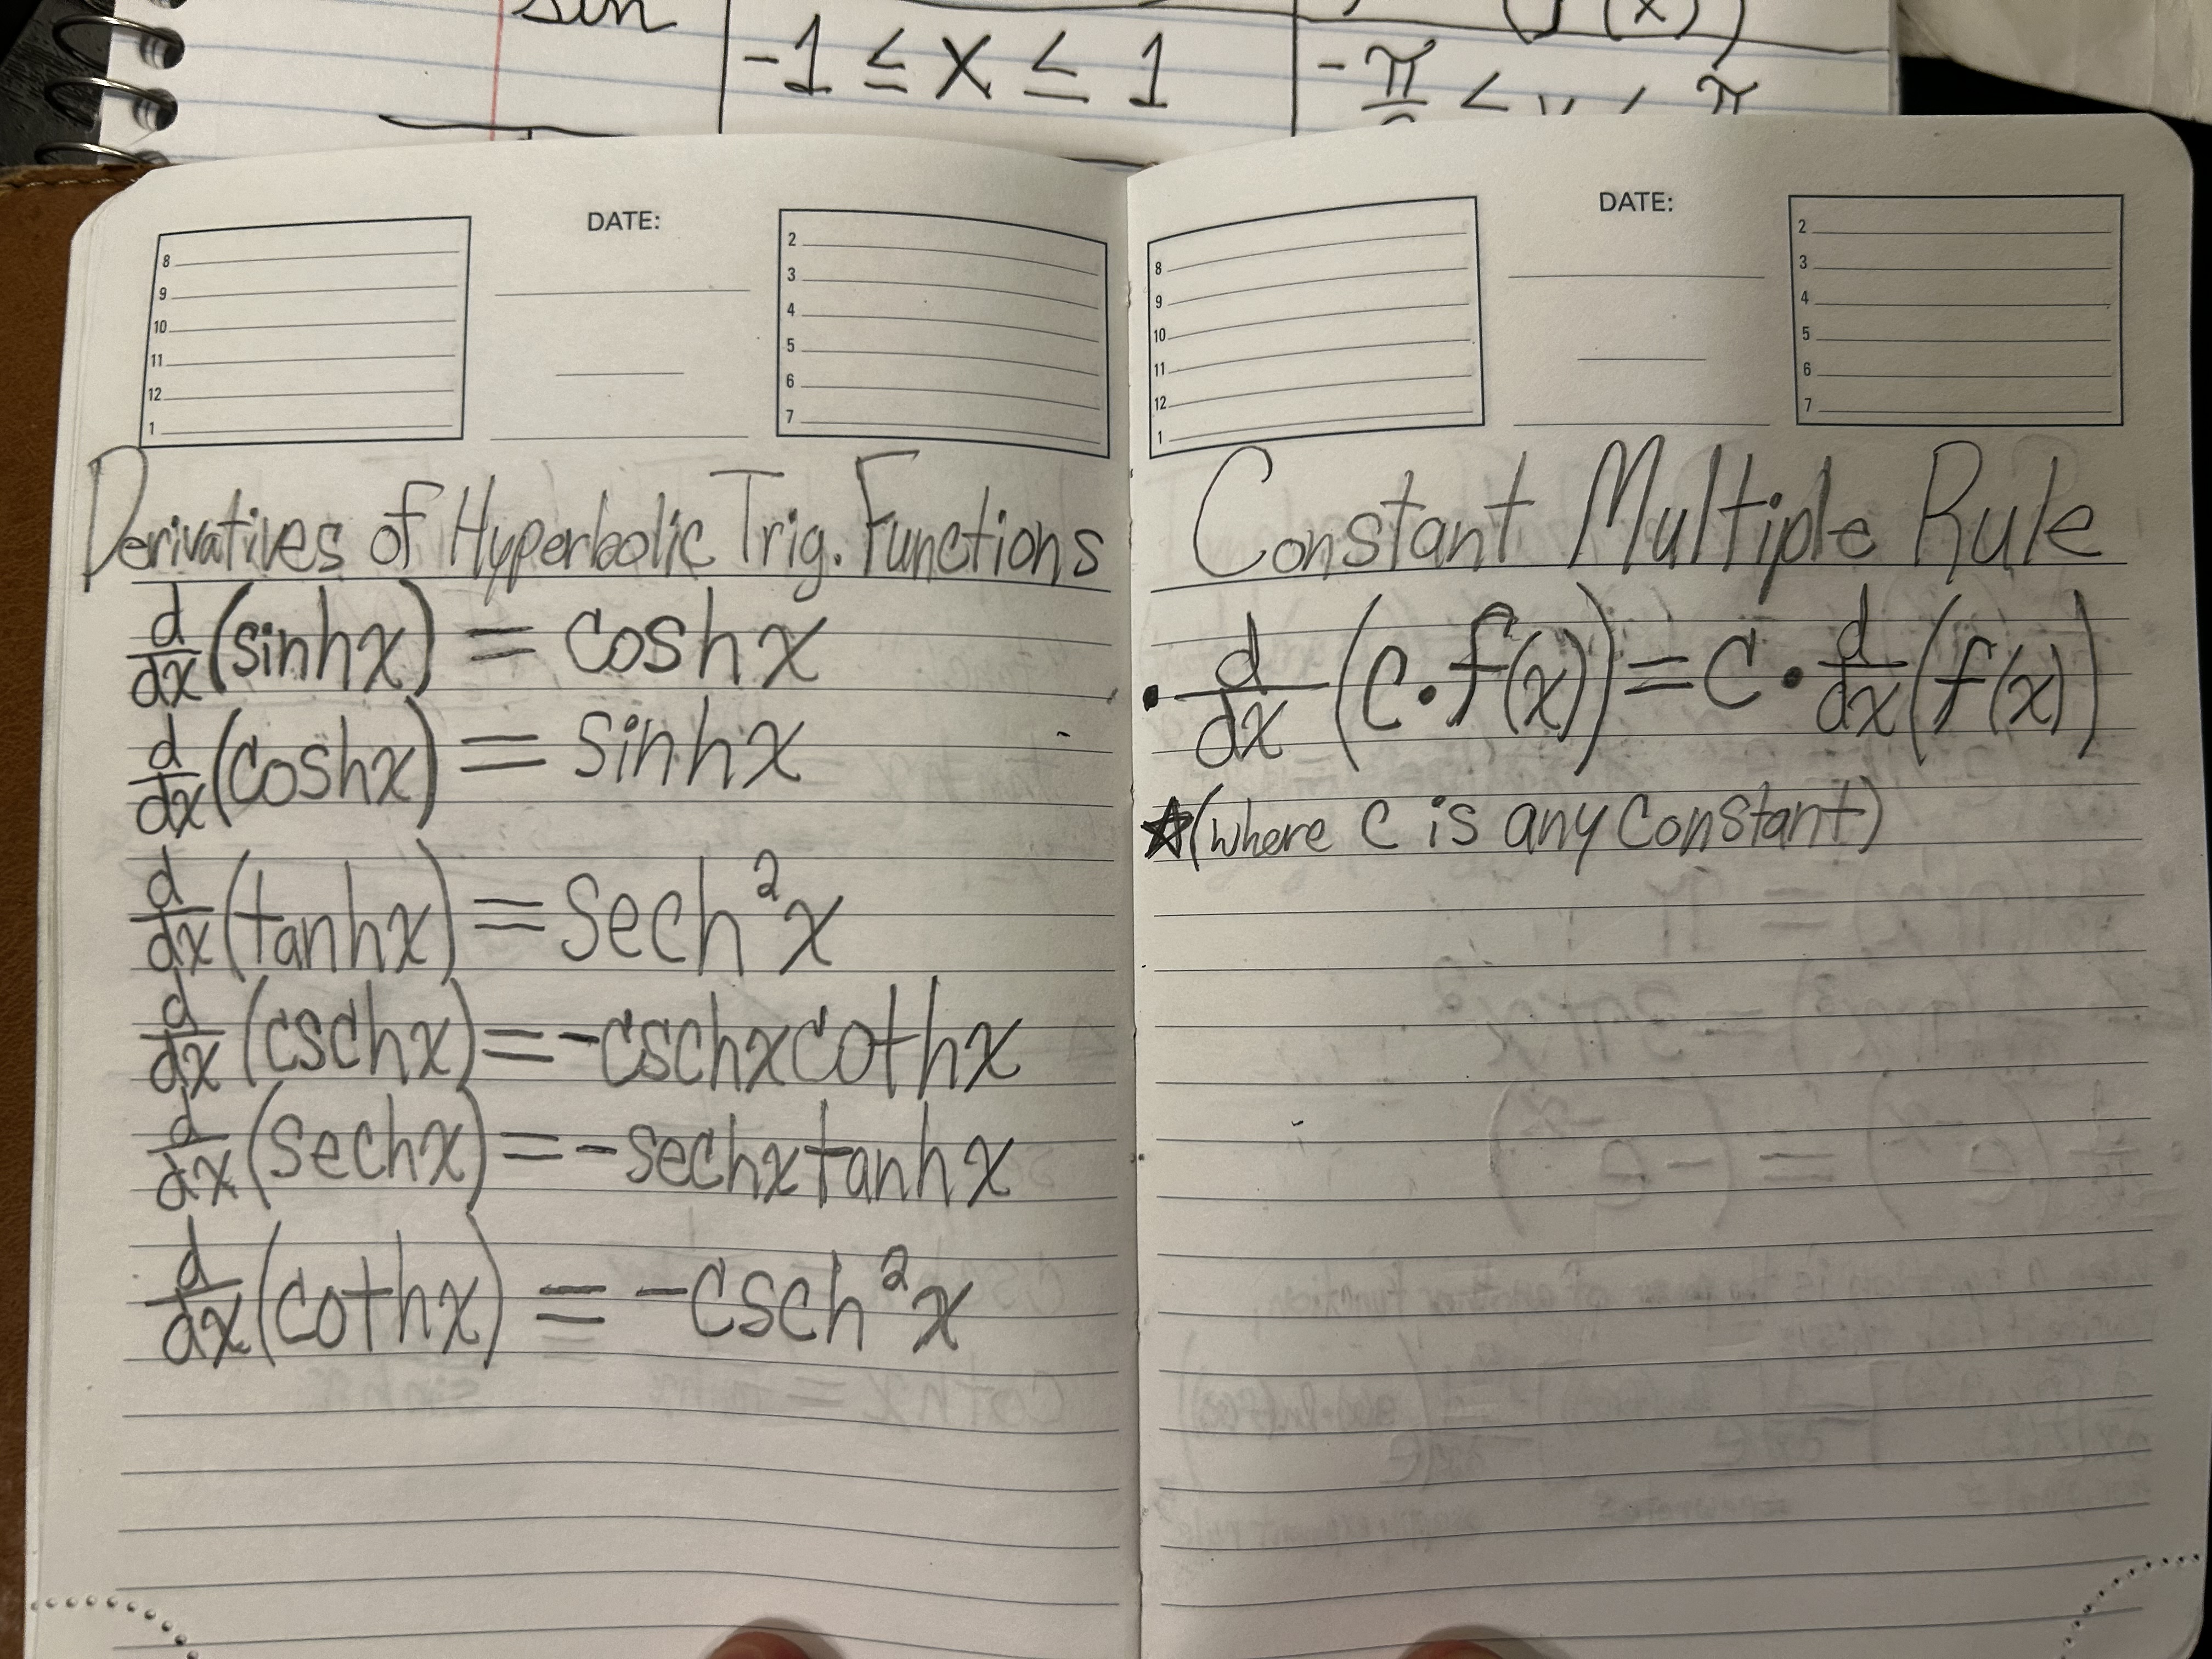 DATE:
8
9
10
11
12
1
2
3
4
5
6
7
Derivatives of Hyperbolic Trig. Functions
d/dx (sinhx) = coshx
d/dx (coshx) = sinhx
d/dx (tanhx) = sech²x
d/dx (cschx) = -cschxcothx
d/dx (sechx) = -sechxtanhx
d/dx (cothx) = -csch²x
DATE:
8
9
10
11
12
1
2
3
4
5
6
7
Constant Multiple Rule
• d/dx (c·f(x)) = c·d/dx (f(x))
☆(where c is any constant)
-1 ≤ x ≤ 1